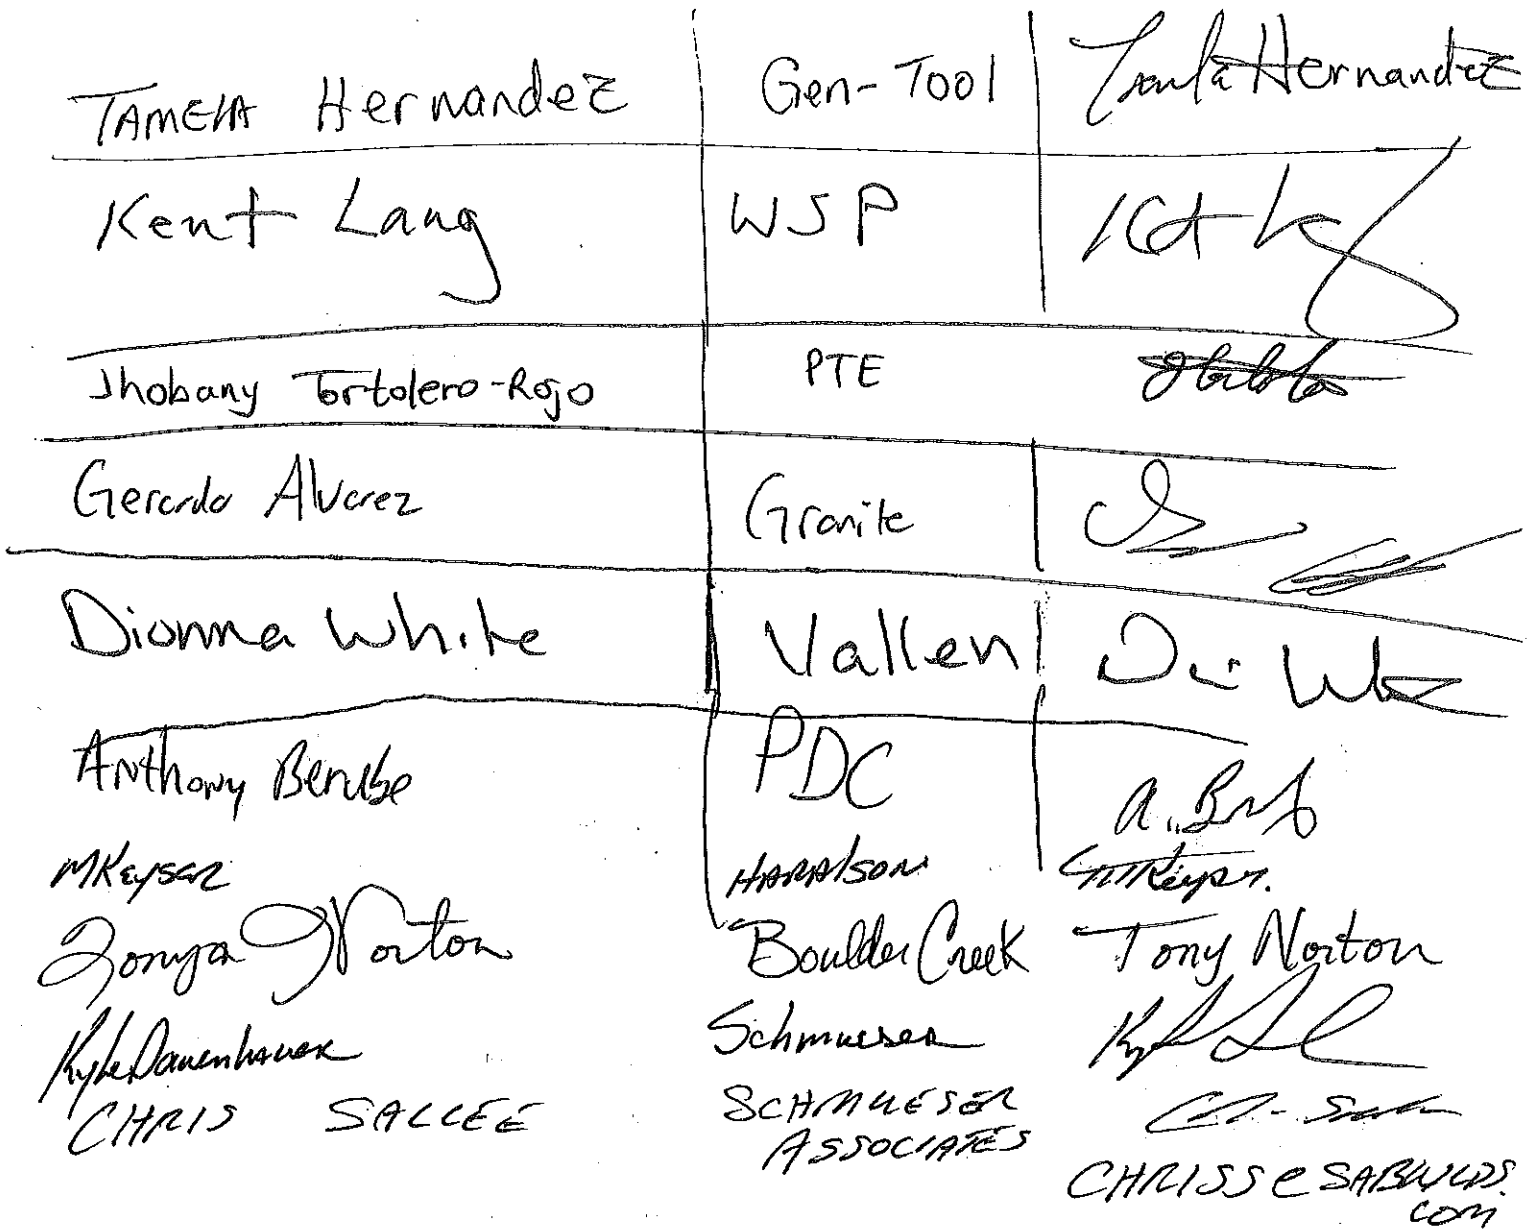 TAMElA Hernandez Gen-Tool Hernandez
Kent Lang WSP
Jhobany Tortolero-Rojo PTE
Gerardo Alvarez Granite
Dionna White Vallen
Anthony Berube PDC
MKeyser HARAlSON MKeyser.
Tonya Norton Boulder Creek Tony Norton
Kyle Dauenhauer Schmueser
CHRIS SALLEE SCHMUESER
ASSOCIATES
CHRISS@SABUILDS.
COM